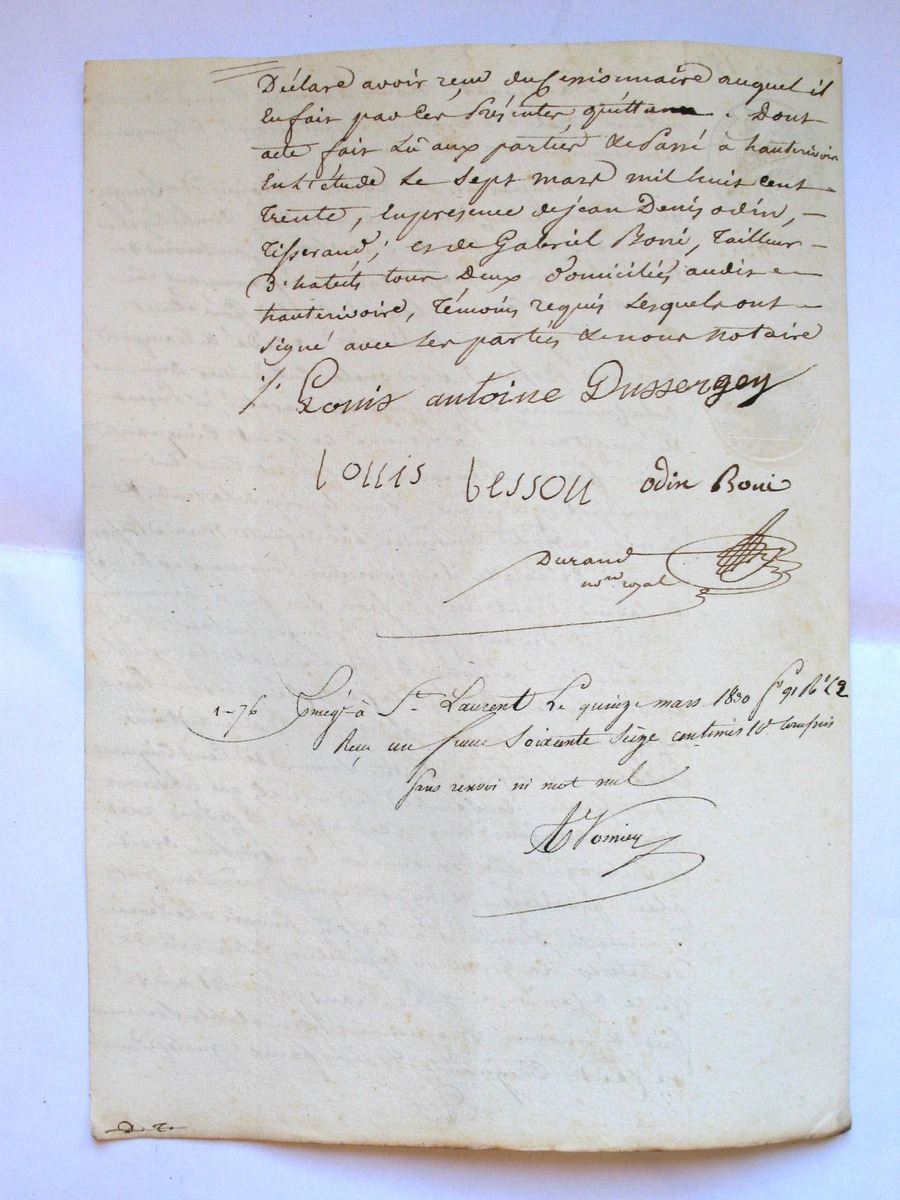 Déclare avoir reçu du Cessionnaire auquel il
En fait par Ces Présentes quittance. Dont
acte fait Lu aux parties & Passé à hauterivoire
En L'étude Le Sept mars mil huit cent
Trente, En présence de jean Denis odin,
Tisserand, et de Gabriel Boni, Tailleur
D'habits tous Deux Domiciliés audit
hauterivoire, Témoins requis Lesquels ont
Signé avec Les parties & nous Notaire
Louis antoine Dussergey
Louis bessou odin Boni
Durand
no.re royal
1-76 Enregé à St Laurent Le quinze mars 1830 fo 91
Reçu un franc Soixante Seize centimes 10e Compris
Sans renvoi ni mot nul
D. T.